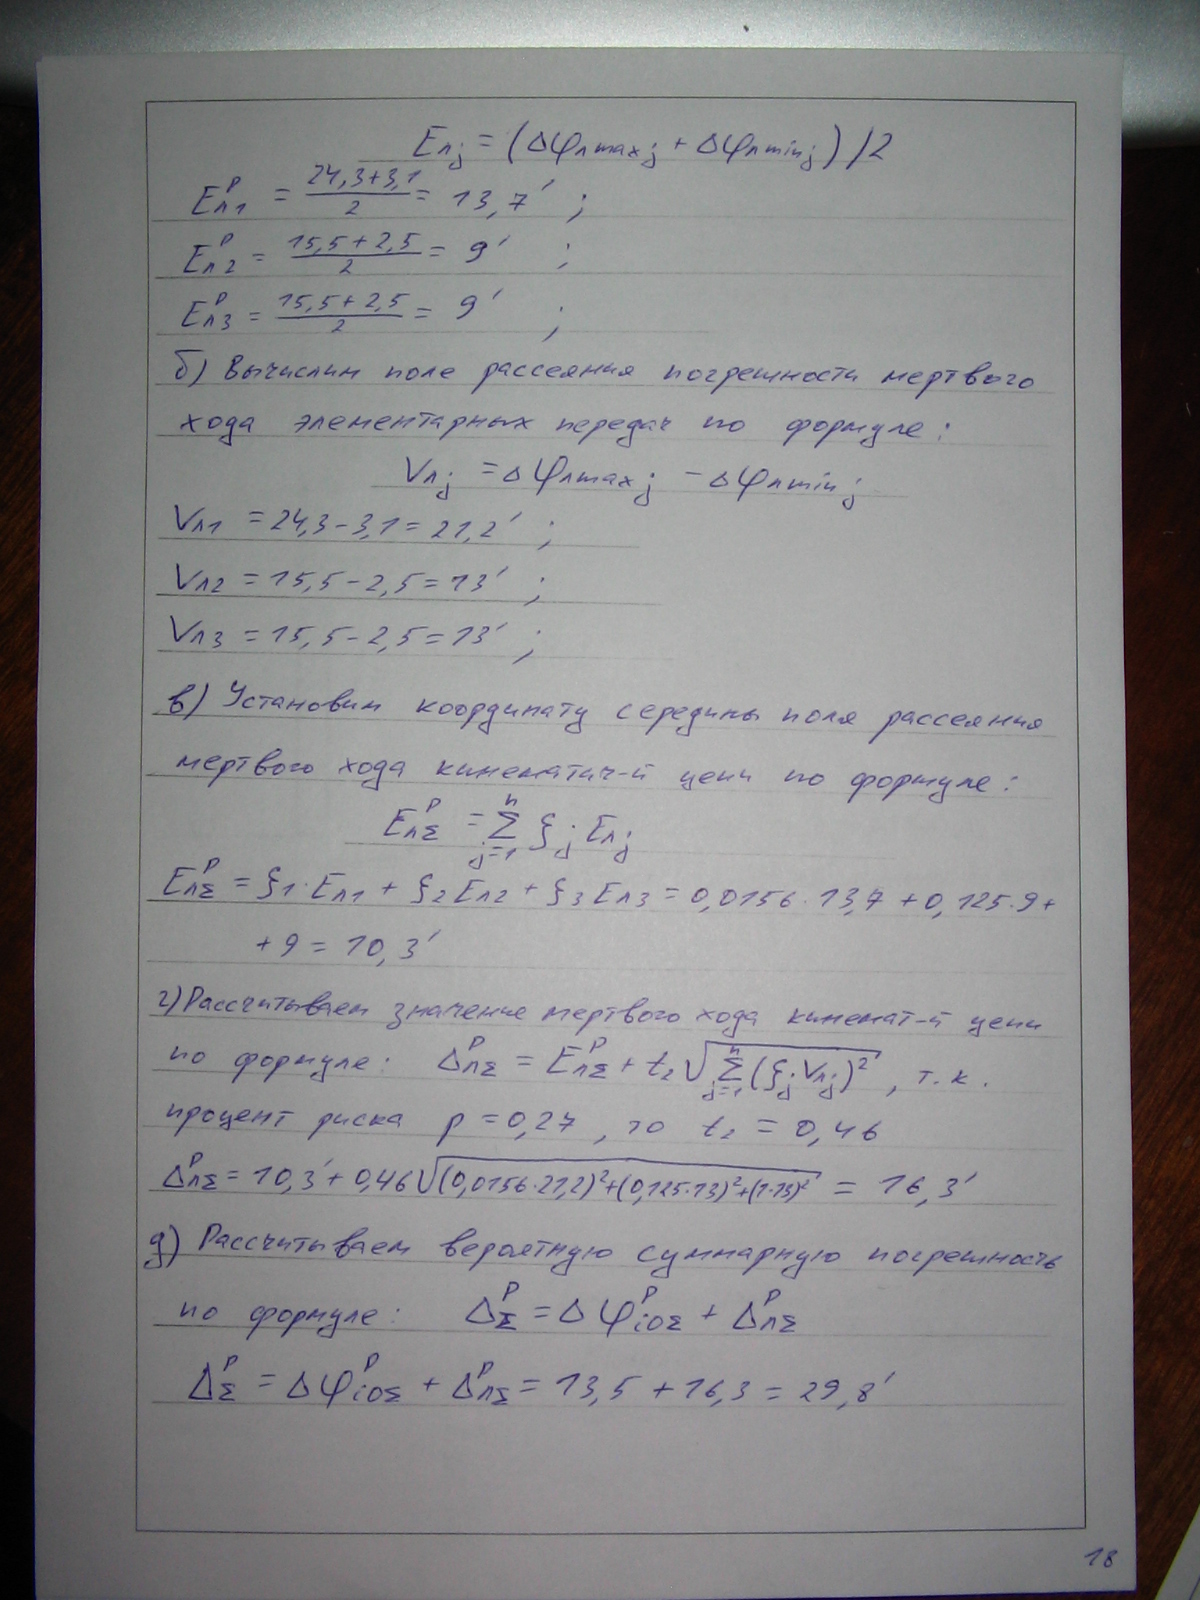 Eлj = (Δφлmaxj + Δφлminj) /2
Eᴾл1 = (24,3+3,1)/2 = 13,7′ ;
Eᴾл2 = (15,5+2,5)/2 = 9′ ;
Eᴾл3 = (15,5+2,5)/2 = 9′ ;
б) Вычислим поле рассеяния погрешности мертвого
хода элементарных передач по формуле:
Vлj = Δφлmaxj − Δφлminj
Vл1 = 24,3−3,1 = 21,2′ ;
Vл2 = 15,5−2,5 = 13′ ;
Vл3 = 15,5−2,5 = 13′ ;
в) Установим координату середины поля рассеяния
мертвого хода кинематич-й цепи по формуле:
EᴾлΣ = Σⁿj=1 ξj Eлj
EᴾлΣ = ξ1·Eл1 + ξ2Eл2 + ξ3Eл3 = 0,0156·13,7 + 0,125·9 +
+ 9 = 10,3′
г) Рассчитываем значение мертвого хода кинемат-й цепи
по формуле: ΔᴾлΣ = EᴾлΣ + t2√(Σⁿj=1(ξjVлj)²) , т.к.
процент риска p = 0,27 , то t2 = 0,46
ΔᴾлΣ = 10,3′ + 0,46√((0,0156·21,2)²+(0,125·13)²+(1·13)²) = 16,3′
д) Рассчитываем вероятную суммарную погрешность
по формуле: ΔᴾΣ = ΔφᴾiоΣ + ΔᴾлΣ
ΔᴾΣ = ΔφᴾiоΣ + ΔᴾлΣ = 13,5 + 16,3 = 29,8′
18